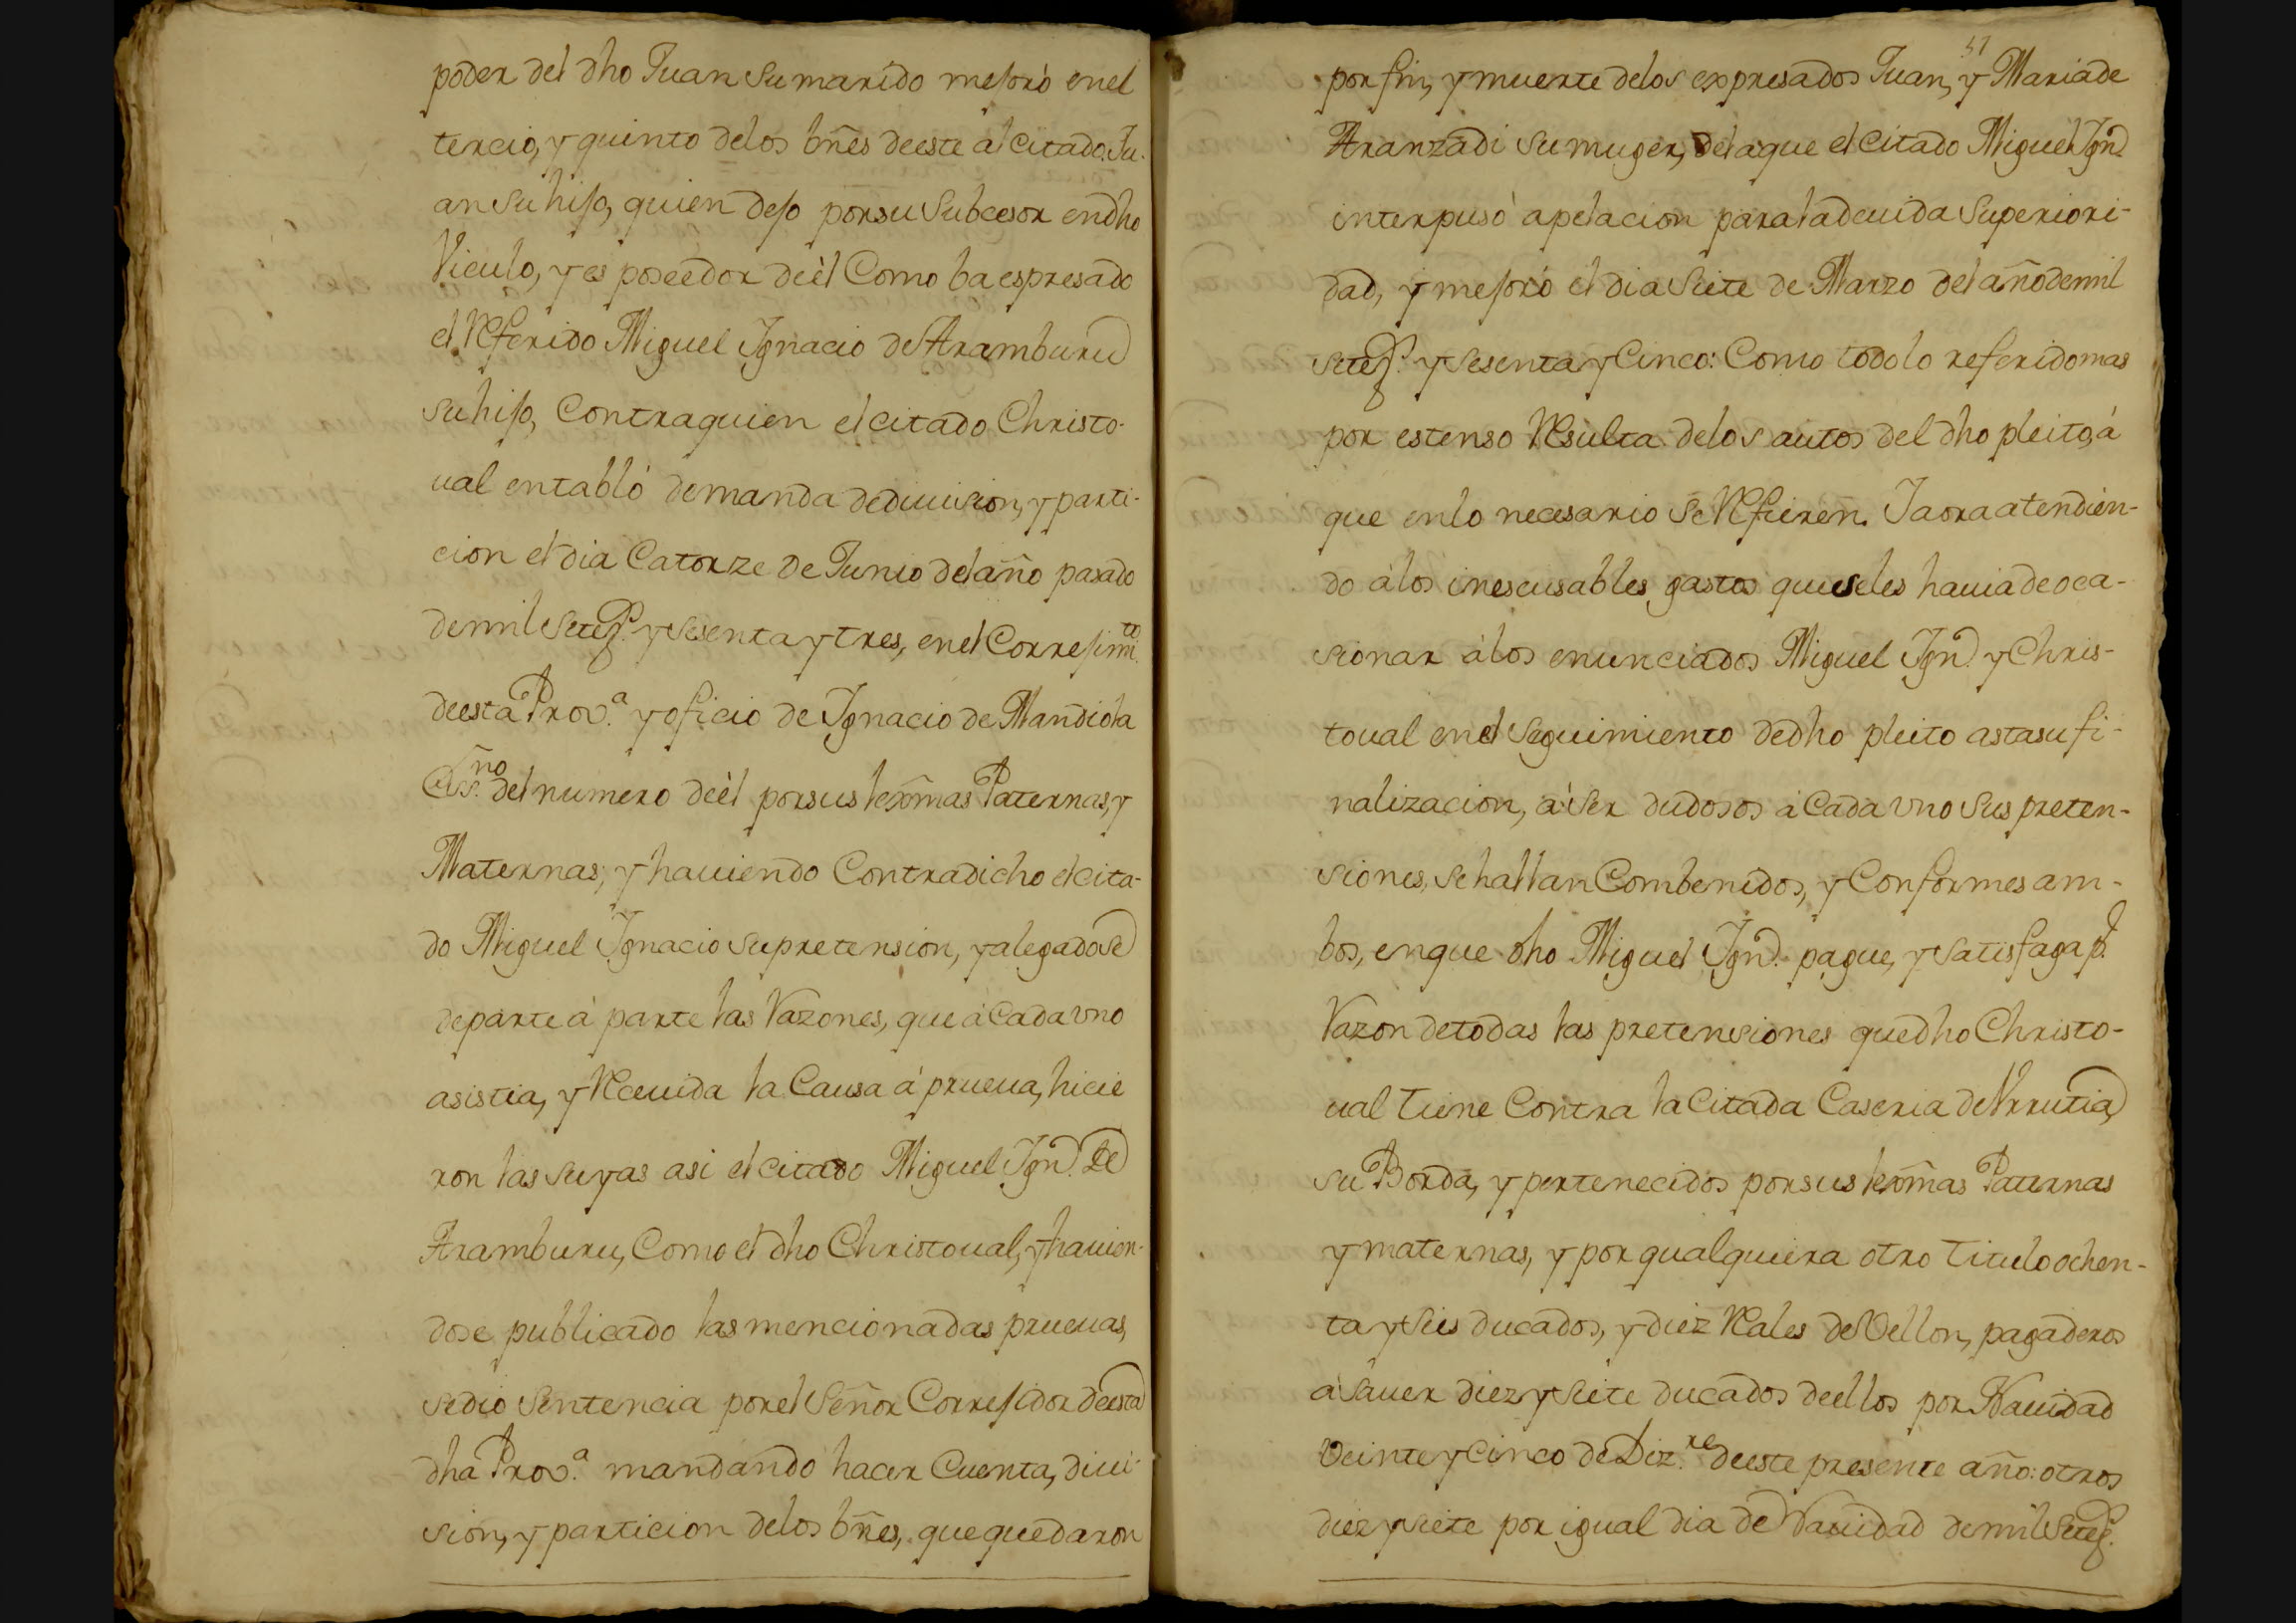 poder del dho Juan su marido mejoró en el
tercio, y quinto delos bñes deeste al citado Ju-
an su hijo, quien dejo por su Subcesor en dho
Viculo, y es poseedor de èl Como ba espresado
el Referido Miguel Ignacio de Aramburu
su hijo, Contra quien el citado Christo-
ual entabló demanda de diuision, y parti-
cion el dia Catorze de Junio del año pasado
de mil setez.s y sesenta y tres, en el Correjimi.to
deesta Prov.a y oficio de Ignacio de Mandiola
Ess.no del numero de èl por sus lexmas Paternas, y
Maternas; y hauiendo Contradicho el cita-
do Miguel Ignacio su pretension, y alegadose
de parte à parte las Razones, que à Cada vno
asistia, y Receuida la Causa à prueua, hicie
ron las suyas asi el citado Miguel Ign.o de
Aramburu, Como el dho Christoual, y hauien-
dose publicado las mencionadas prueuas,
se dio sentencia por el Señor Correjidor deesta
dha Prov.a mandando hacer Cuenta, diui-
sion, y particion delos bñes, que quedaron
51
por fin, y muerte delos expresados Juan, y Maria de
Aranzadi su muger, dela que el citado Miguel Ign.o
interpusó apelacion para la deuida Superiori-
dad, y mejoró el dia siete de Marzo del año de mil
setez.s y sesenta y Cinco: Como todo lo referido mas
por estenso Resulta delos autos del dho pleito, à
que en lo necesario se Refieren. Y aora atendien-
do à los inescusables gastos que se les hauia de oca-
sionar à los enunciados Miguel Ign.o y Chris-
toual en el seguimiento de dho pleito asta su fi-
nalizacion, à ser dudosos à Cada vno sus preten-
siones, se hallan Combenidos, y Conformes am-
bos, en que dho Miguel Ign.o pague, y satisfaga p.r
Razon de todas las pretensiones que dho Christo-
ual tiene Contra la Citada Caseria de Vrrutia,
su Borda, y pertenecidos por sus lexmas Paternas
y maternas, y por qualquiera otro titulo ochen-
ta y seis ducados, y diez Reales de Vellon, pagaderos
à sauer diez y siete ducados de ellos por Nauidad
veinte y cinco de Diz.re deeste presente año: otros
diez y siete por igual dia de Nauidad de mil setez.s